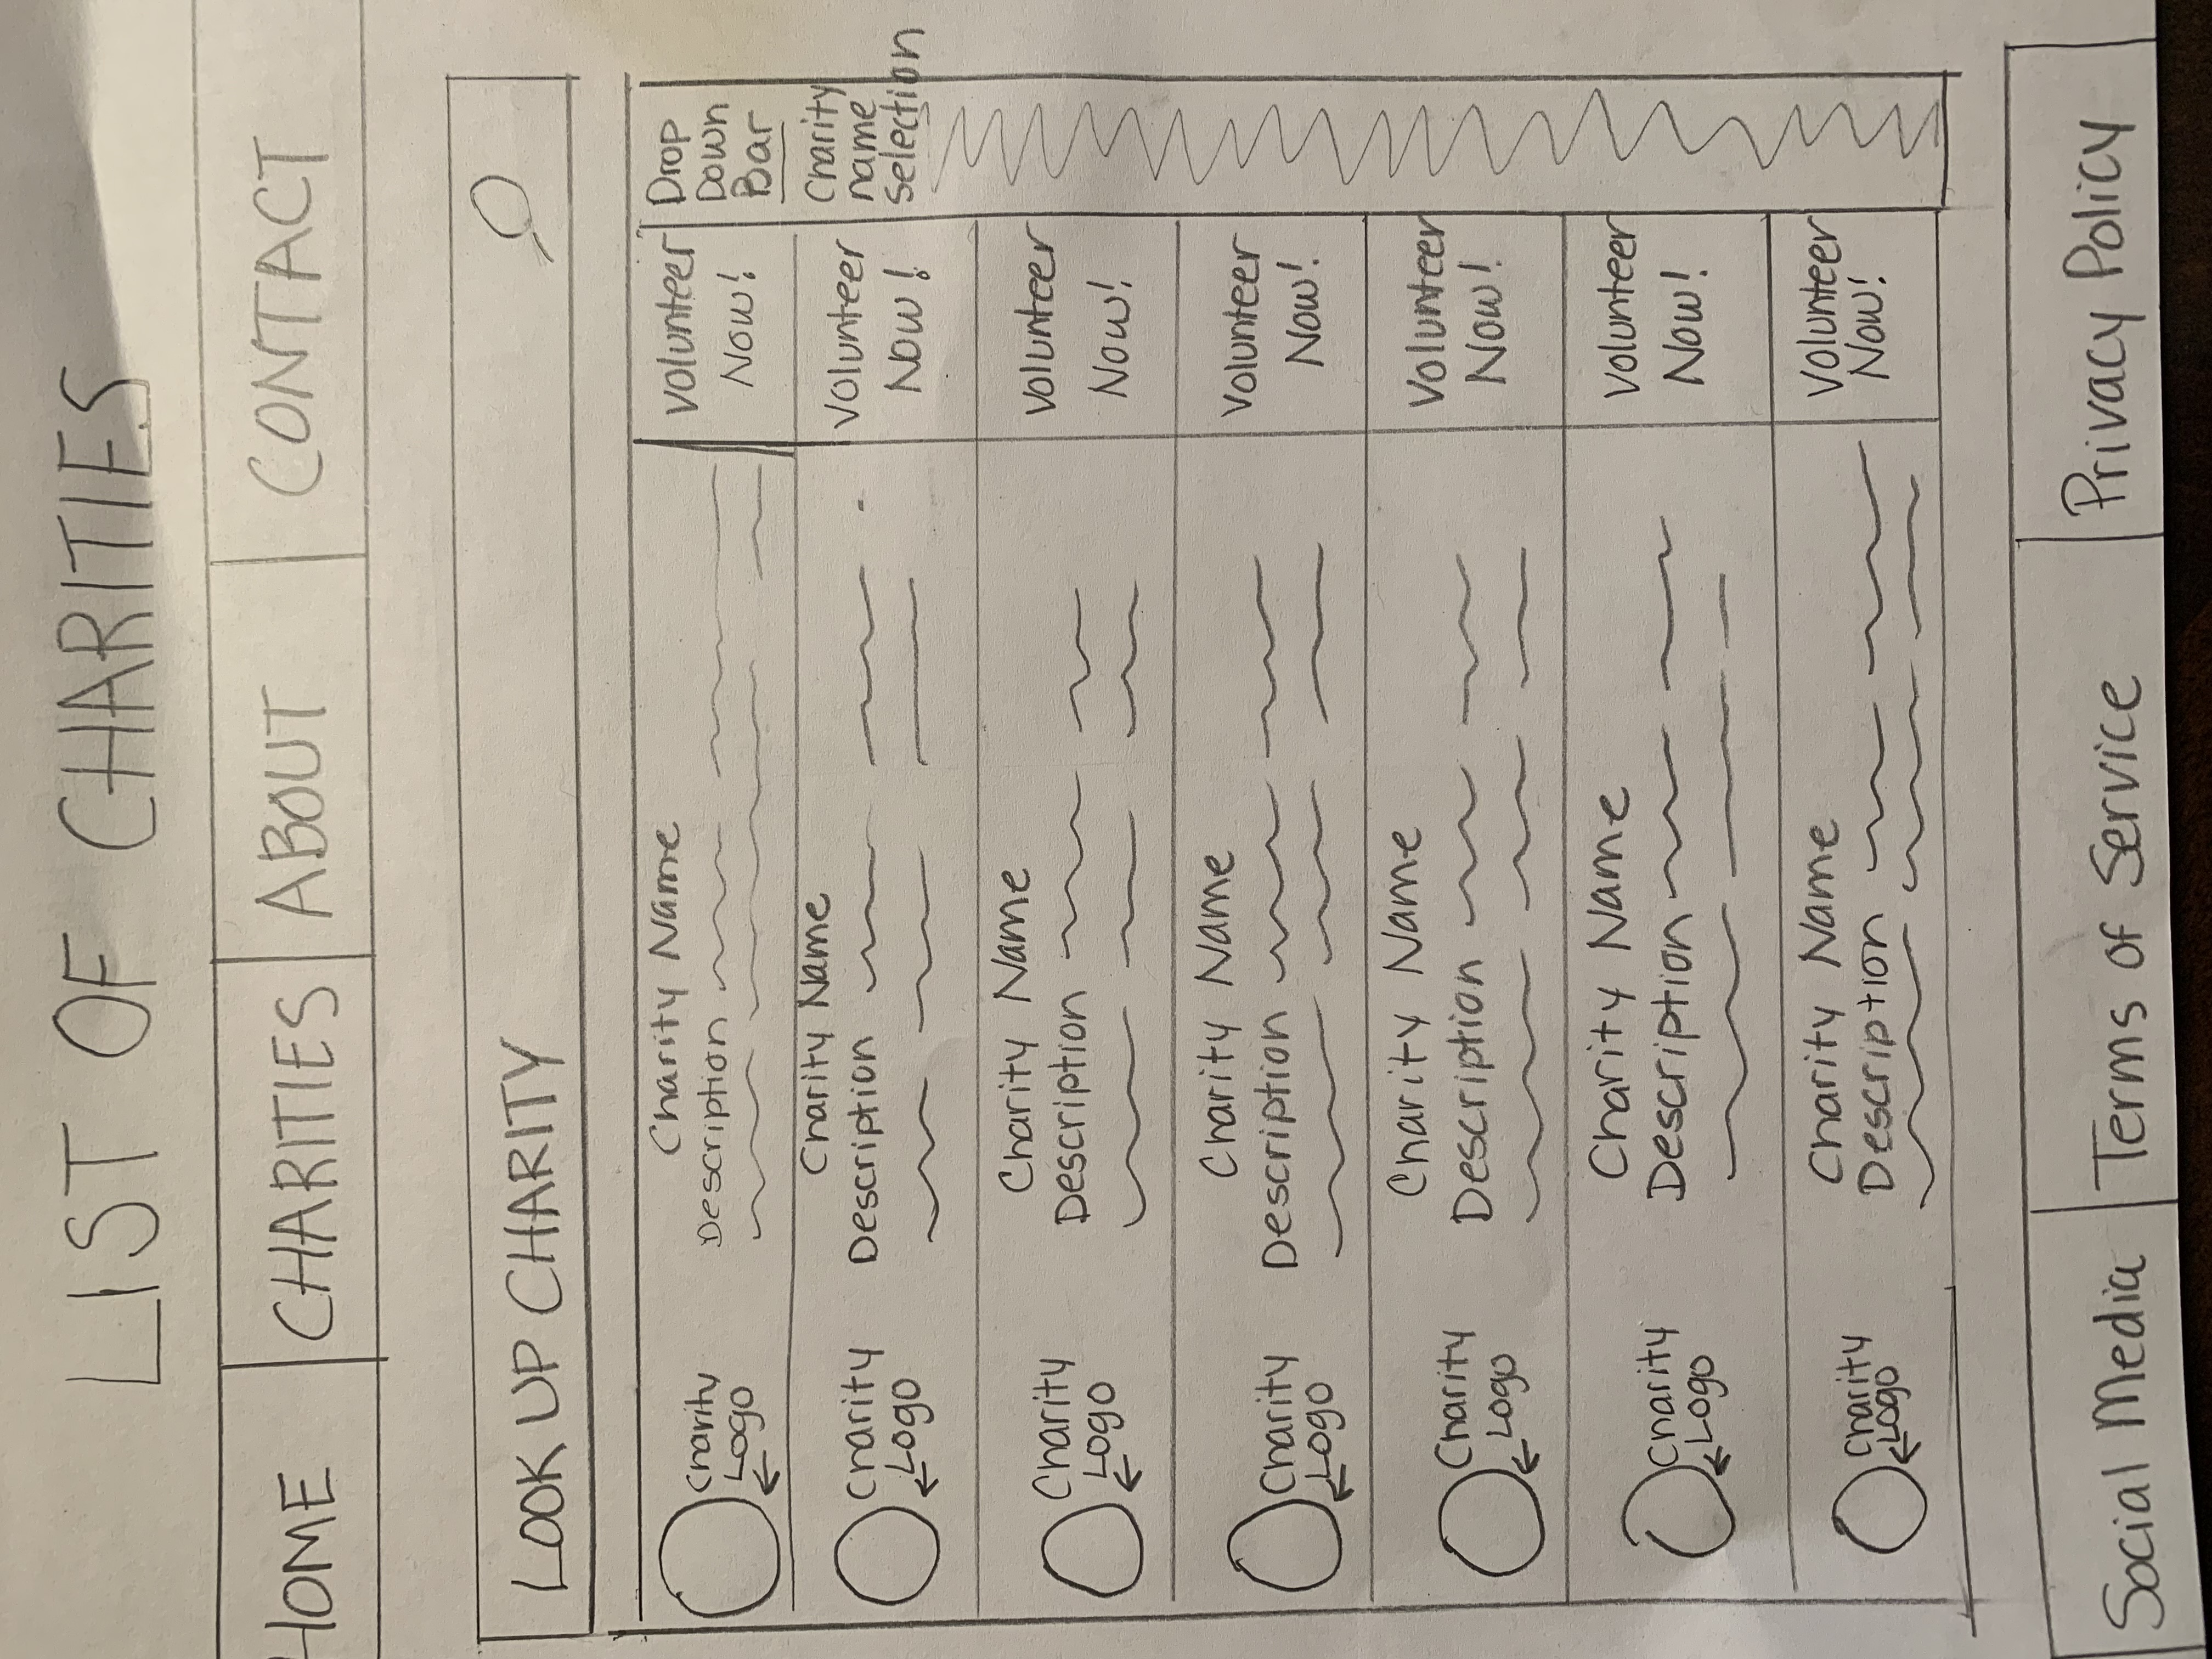 LIST OF CHARITIES
HOME CHARITIES ABOUT CONTACT
LOOK UP CHARITY
Charity
Logo
Charity Name
Description
Volunteer
Now!
Charity
Logo
Charity Name
Description
Volunteer
Now!
Charity
Logo
Charity Name
Description
Volunteer
Now!
Charity
Logo
Charity Name
Description
Volunteer
Now!
Charity
Logo
Charity Name
Description
Volunteer
Now!
Charity
Logo
Charity Name
Description
Volunteer
Now!
Charity
Logo
Charity Name
Description
Volunteer
Now!
Drop
Down
Bar
Charity
name
selection
Social Media Terms of Service Privacy Policy